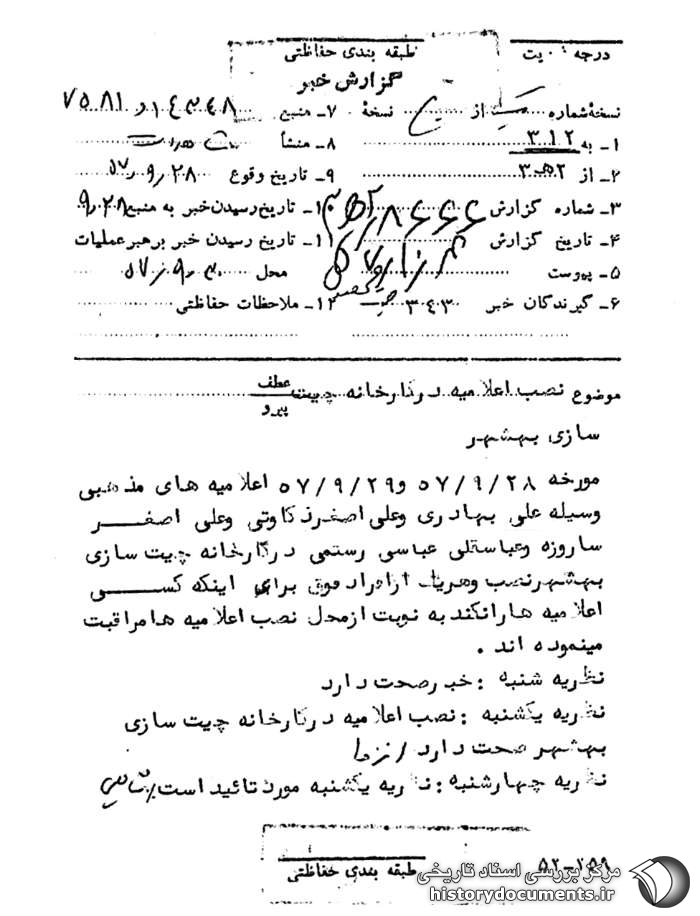 درجه فوریت
طبقه بندی حفاظتی
گزارش خبر
نسخهٔ شماره از نسخهٔ
۷ـ منبع ۱۴۳۴۸ و ۷۵۸۱
۱ـ به ۳۱۲
۸ـ منشأ
۲ـ از ۳هـ۲
۹ـ تاریخ وقوع ۵۷٫۹٫۲۸
۳ـ شماره گزارش
۱۰ـ تاریخ رسیدن خبر به منبع ۹٫۲۸
۴ـ تاریخ گزارش
۱۱ـ تاریخ رسیدن خبر برهبر عملیات
۵ـ پیوست
محل ۵۷٫۹٫۳۰
۶ـ گیرندگان خبر ۳۴۳
۱۲ـ ملاحظات حفاظتی
موضوع نصب اعلامیه در کارخانه چیت
عطف
پیرو
سازی بهشهر
مورخه ۵۷/۹/۲۸ و ۵۷/۹/۲۹ اعلامیه های مذهبی
وسیله علی بهادری وعلی اصغر ذکاوتی وعلی اصغر
ساروزه وعباسقلی عباسی رستمی در کارخانه چیت سازی
بهشهر نصب وهریک ازافراد فوق برای اینکه کسی
اعلامیه هارانکند به نوبت از محل نصب اعلامیه ها مراقبت
مینموده اند .
نظریه شنبه : خبر صحت دارد
نظریه یکشنبه : نصب اعلامیه در کارخانه چیت سازی
بهشهر صحت دارد
نظریه چهارشنبه : نظریه یکشنبه مورد تائید است
طبقه بندی حفاظتی
۵۲-۲۵۹
مرکز بررسی اسناد تاریخی
historydocuments.ir